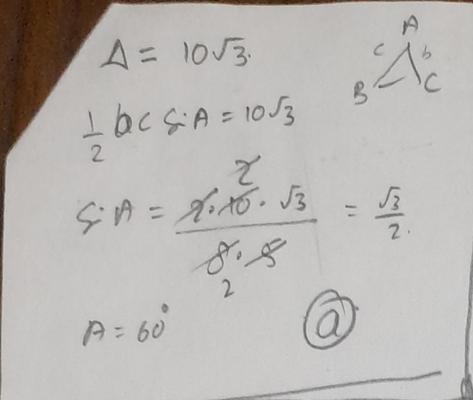 Δ = 10√3.
A
c b
B C
1/2 bc sin A = 10√3
sin A = 2·10·√3 / 8·5 = √3/2.
2
2
A = 60°
a